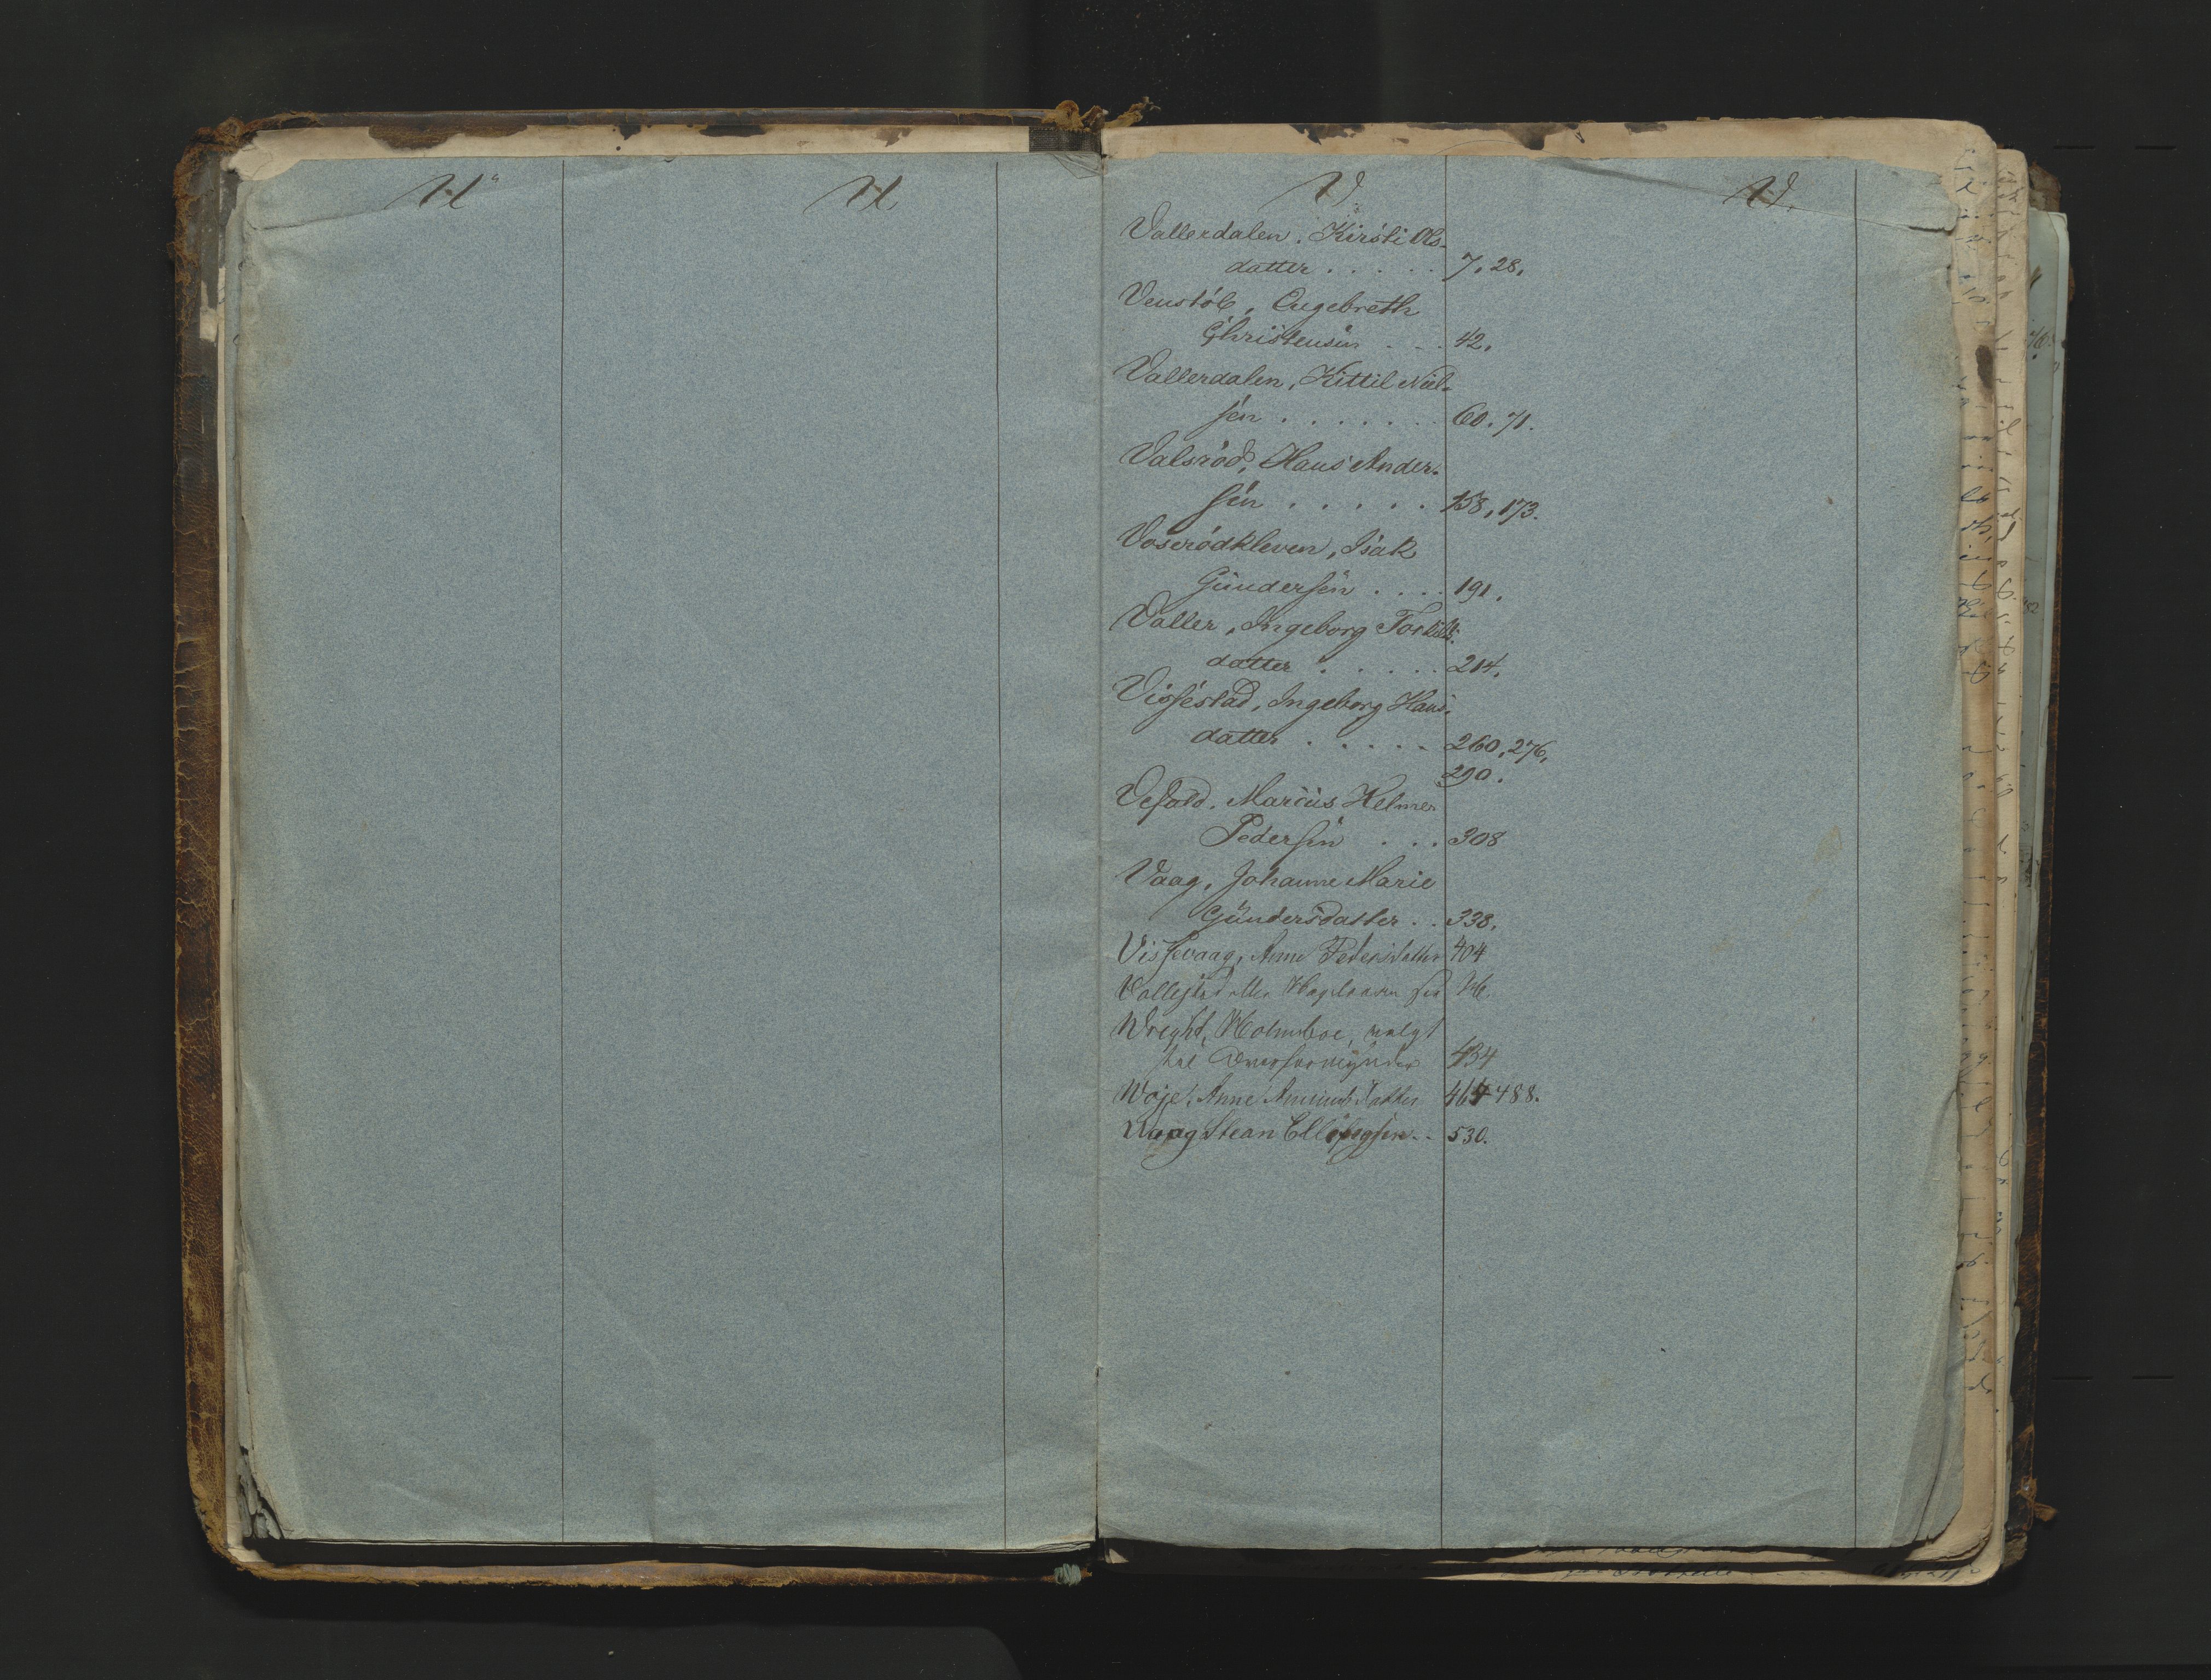 U
U
V
V.
Vallerdalen, Kirsti Ols-
datter . . . . . 7. 28.
Venstöb, Engebreth
Christensen . . . 42.
Vallerdalen, Kittil Niel-
sen . . . . . . . 60. 71.
Valsröd, Hans Ander-
sen . . . . . 158, 173.
Voserödkleven, Isak
Gundersen . . . . 191.
Valler, Ingeborg
datter . . . . . 214.
Vissestad, Ingeborg Hans-
datter . . . . . 260, 276,
290.
Vefald, Marius Helmer
Pedersen . . . 308
Vaag, Johanne Marie
Gundersdatter . . 338.
Vissevaag, Anne Pedersdatter 404
Wright, Holmboe, valgt
til Overformynder 434
Woje, Anne 488.
Vaag Stean . . 530.